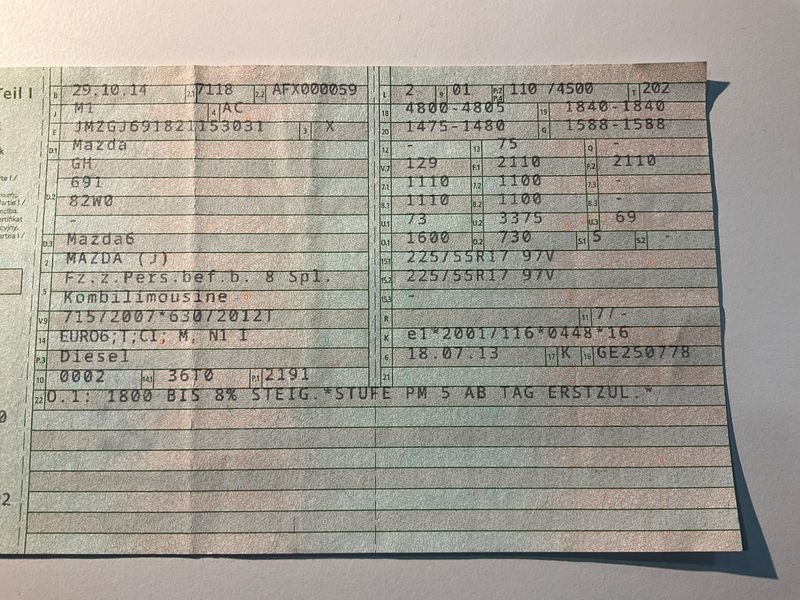 Teil I
B 29.10.14 2.1 7118 2.2 AFX000059
J M1 4 AC
E JMZGJ691821153031 3 X
D.1 Mazda
GH
D.2 691
82W0
-
D.3 Mazda6
2 MAZDA (J)
5 Fz.z.Pers.bef.b. 8 Spl.
Kombilimousine
V.9 715/2007*630/2012T
14 EURO6;T;CI; M, N1 I
P.3 Diesel
10 0002 14.1 36T0 P.1 2191
L 2 9 01 P.2 P.4 110 /4500 T 202
18 4800-4805 19 1840-1840
20 1475-1480 G 1588-1588
12 - 13 75 Q -
V.7 129 F.1 2110 F.2 2110
7.1 1110 7.2 1100 7.3 -
8.1 1110 8.2 1100 8.3 -
U.1 73 U.2 3375 U.3 69
O.1 1600 O.2 730 S.1 5 S.2 -
15.1 225/55R17 97V
15.2 225/55R17 97V
15.3 -
R 11 7/-
K e1*2001/116*0448*16
6 18.07.13 17 K 16 GE250778
21
22 O.1: 1800 BIS 8% STEIG.*STUFE PM 5 AB TAG ERSTZUL.*